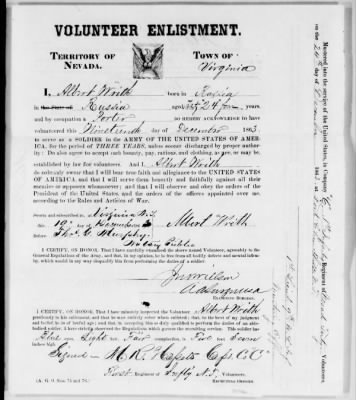 VOLUNTEER ENLISTMENT.
TERRITORY OF
NEVADA.
TOWN OF
Virginia
I, Albert Writh born in Russia
in Russia aged 24 years,
and by occupation a Porter DO HEREBY ACKNOWLEDGE to have
volunteered this Nineteenth day of December 1863,
to serve as a SOLDIER IN THE ARMY OF THE UNITED STATES OF AMER-
ICA, for the period of THREE YEARS, unless sooner discharged by proper author-
ity: Do also agree to accept such bounty, pay, rations, and clothing, as are, or may be,
established by law for volunteers. And I, Albert Writh do
solemnly swear that I will bear true faith and allegiance to the UNITED STATES
OF AMERICA, and that I will serve them honestly and faithfully against all their
enemies or opposers whomsoever; and that I will observe and obey the orders of the
President of the United States, and the orders of the officers appointed over me,
according to the Rules and Articles of War.
Sworn and subscribed to, at Virginia N.T.
this 19th day of December 1863
Albert Writh
Before
Notary Public
I CERTIFY, ON HONOR, That I have carefully examined the above named Volunteer, agreeably to the
General Regulations of the Army, and that, in my opinion, he is free from all bodily defects and mental infirm-
ity, which would in any way disqualify him from performing the duties of a soldier.
EXAMINING SURGEON.
I CERTIFY, ON HONOR, That I have minutely inspected the Volunteer, Albert Writh
previously to his enlistment, and that he was entirely sober when enlisted; that, to the best of my judgment
and belief, he is of lawful age; and that, in accepting him as duly qualified to perform the duties of an able-
bodied soldier, I have strictly observed the Regulations which govern the recruiting service. This soldier has
Blue eyes, Light hair, Fair complexion, is Five feet Seven
inches high.
Signed
Regiment of
RECRUITING OFFICER.
(A. G. O. Nos. 73 and 76.)
Mustered into the service of the United States, in Company
Regiment
Volunteers,
on the day of December 1863, at